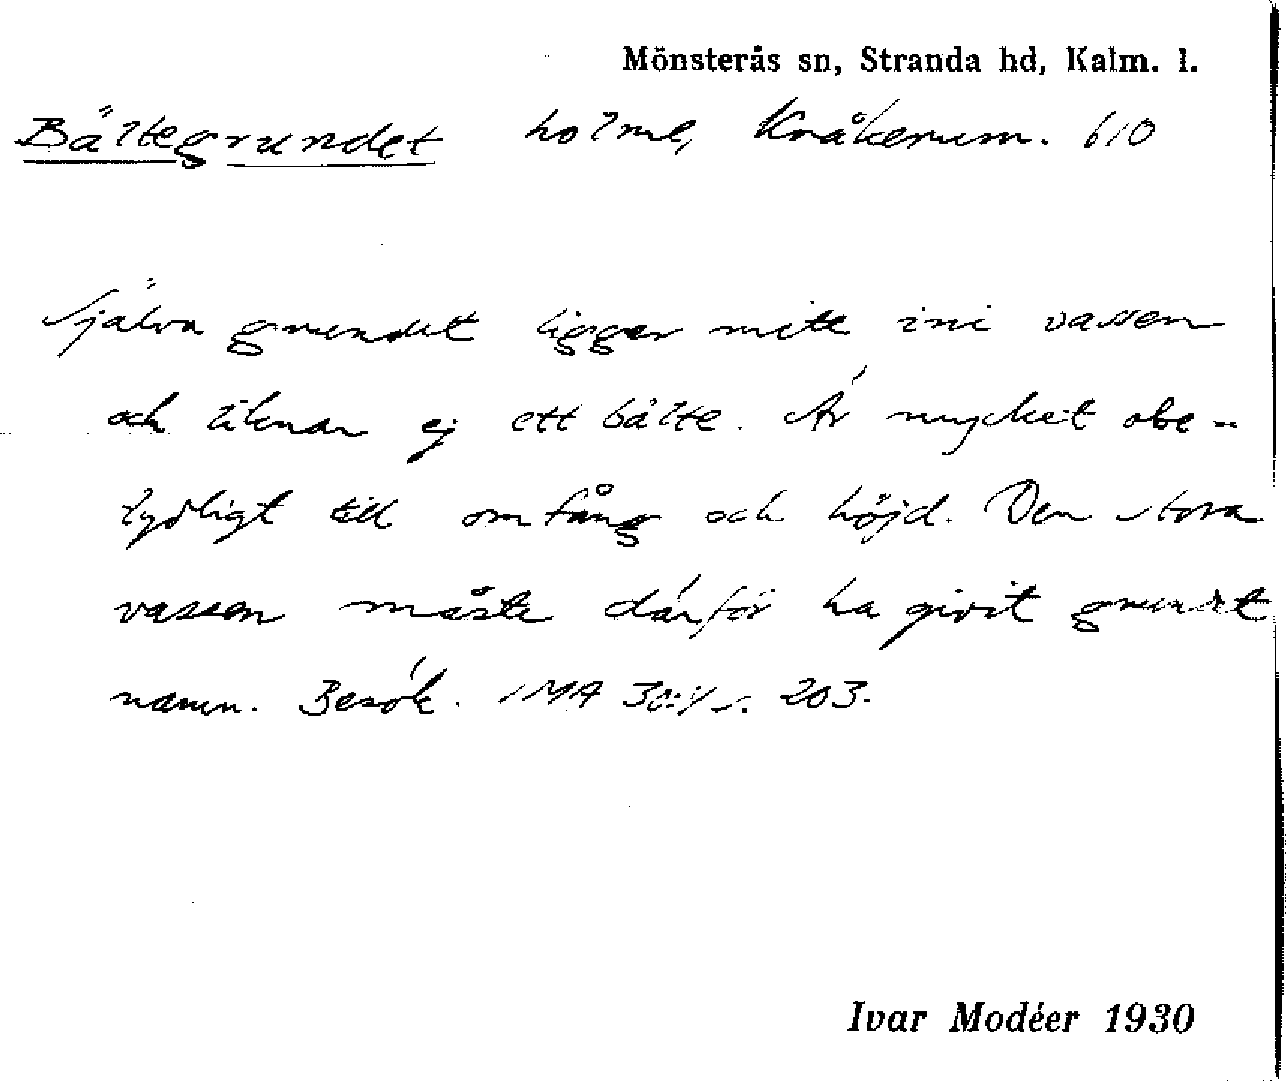 Mönsterås sn, Stranda hd, Kalm. l.
Bältegrundet holme, Knåkerum. 610
Själva grundet ligger mitt ini vassen
och liknar ej ett bälte. Är mycket obe-
tydligt till omfång och höjd. Den stora
vassen måste därför ha givit grundet
namn. Besök. IMA 30:1 s. 203.
Ivar Modéer 1930